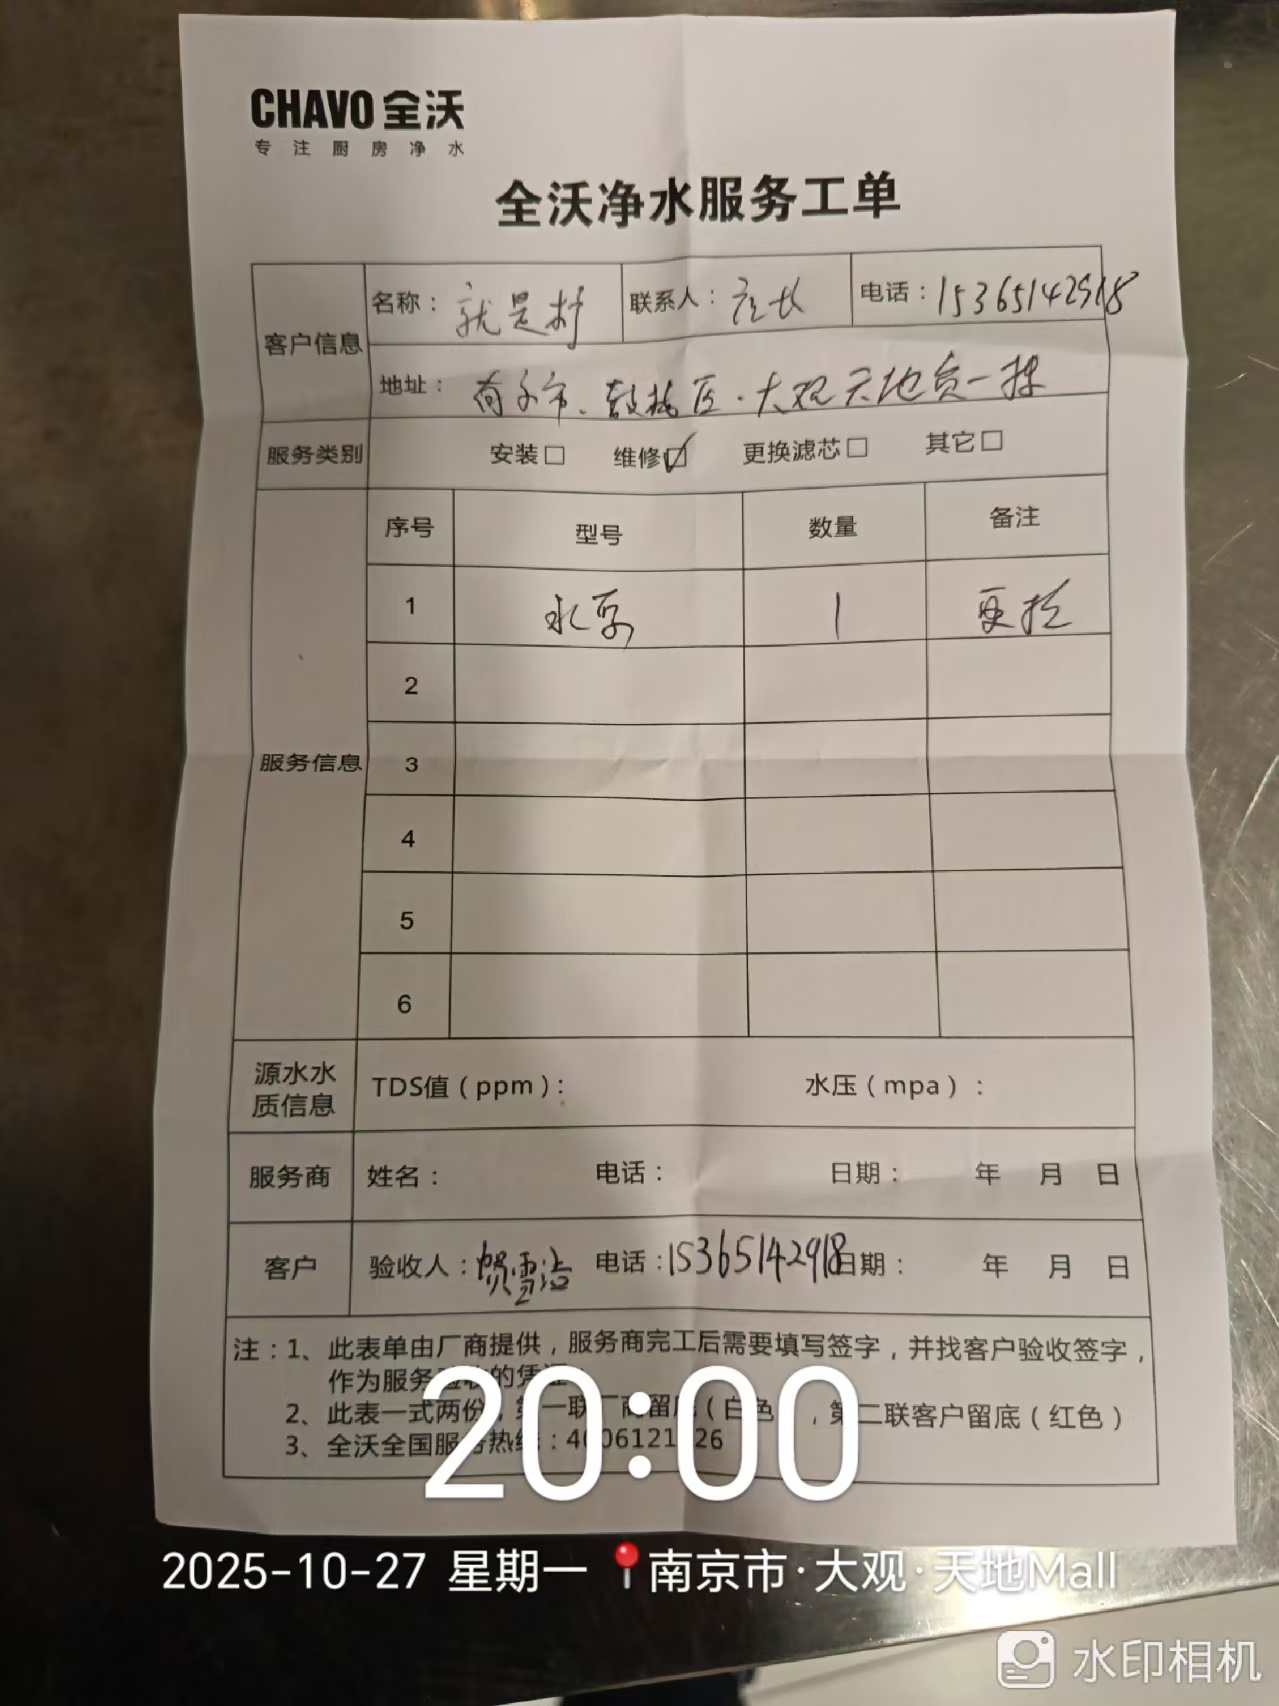 CHAVO 全沃
专注厨房净水
全沃净水服务工单
客户信息 名称：就是村 联系人：店长 电话：15365142918
地址：南京市、鼓楼区·大观天地负一楼
服务类别 安装□ 维修☑ 更换滤芯□ 其它□
服务信息 序号 型号 数量 备注
1 水泵 1 更换
2
3
4
5
6
源水水质信息 TDS值（ppm）： 水压（mpa）：
服务商 姓名： 电话： 日期： 年 月 日
客户 验收人：贺雪洁 电话：15365142918 日期： 年 月 日
注：1、此表单由厂商提供，服务商完工后需要填写签字，并找客户验收签字，
作为服务验收的凭证
2、此表一式两份，第一联厂商留底（白色），第二联客户留底（红色）
3、全沃全国服务热线：
20:00
2025-10-27 星期一 南京市·大观·天地Mall
水印相机